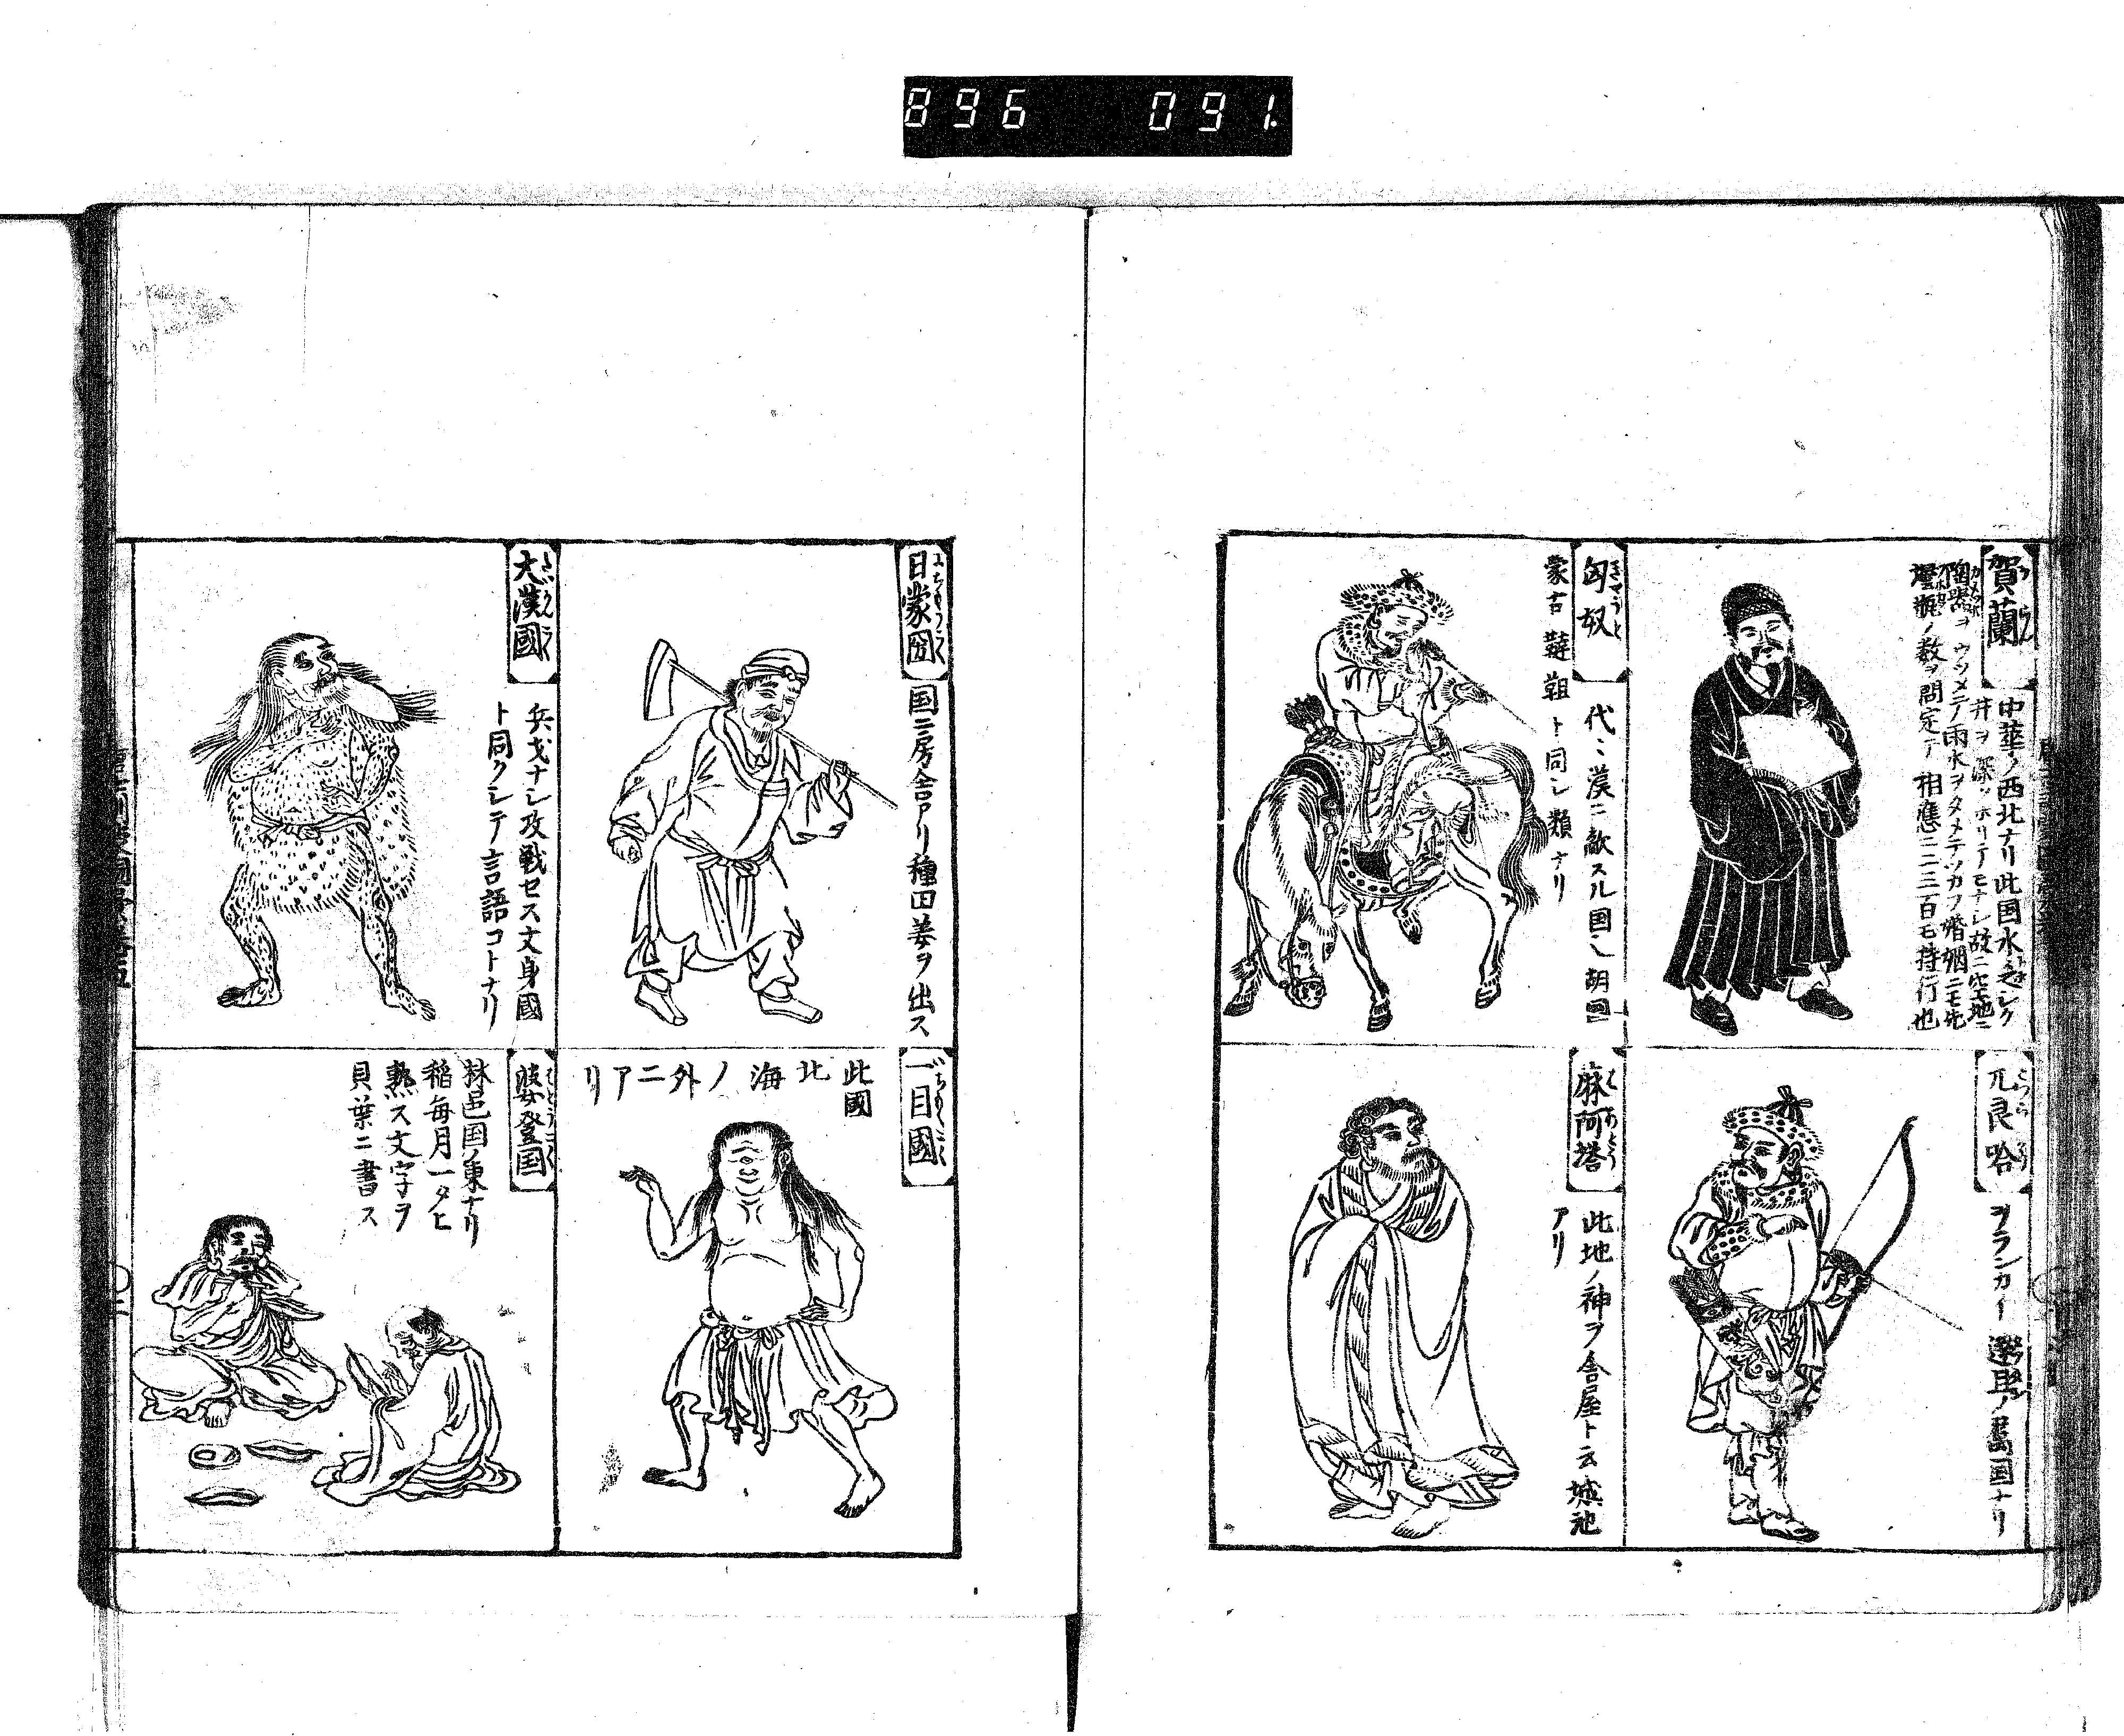 896 091
賀蘭
中華ノ西北ナリ此国水乏シク
井ヲ深ッホリテモナシ故ニ空地ニ
陶器ヲウツメテ雨水ヲタメテツカフ婚姻ニモ先
壜瓶ノ数ヲ問定テ相應ニ二三百モ持行也
匈奴
代〻漢ニ敵スル国也胡国
蒙古韃靼ト同シ類ナリ
兀良哈
ヲランカイ
国ナリ
麻阿塔
此地ノ神ヲ舎屋ト云城池
アリ
日蒙國
国ニ房舎アリ種田姜ヲ出ス
大漢國
兵戈ナシ攻戦セス文身國
ト同クシテ言語コトナリ
一目國
此國
北海ノ外ニアリ
婆登国
林邑国ノ東ナリ
稲毎月一タヒ
熟ス文字ヲ
貝葉ニ書ス